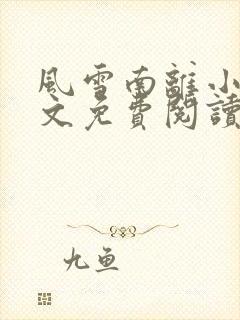 風雪南離小
文免費閱讀
九鱼